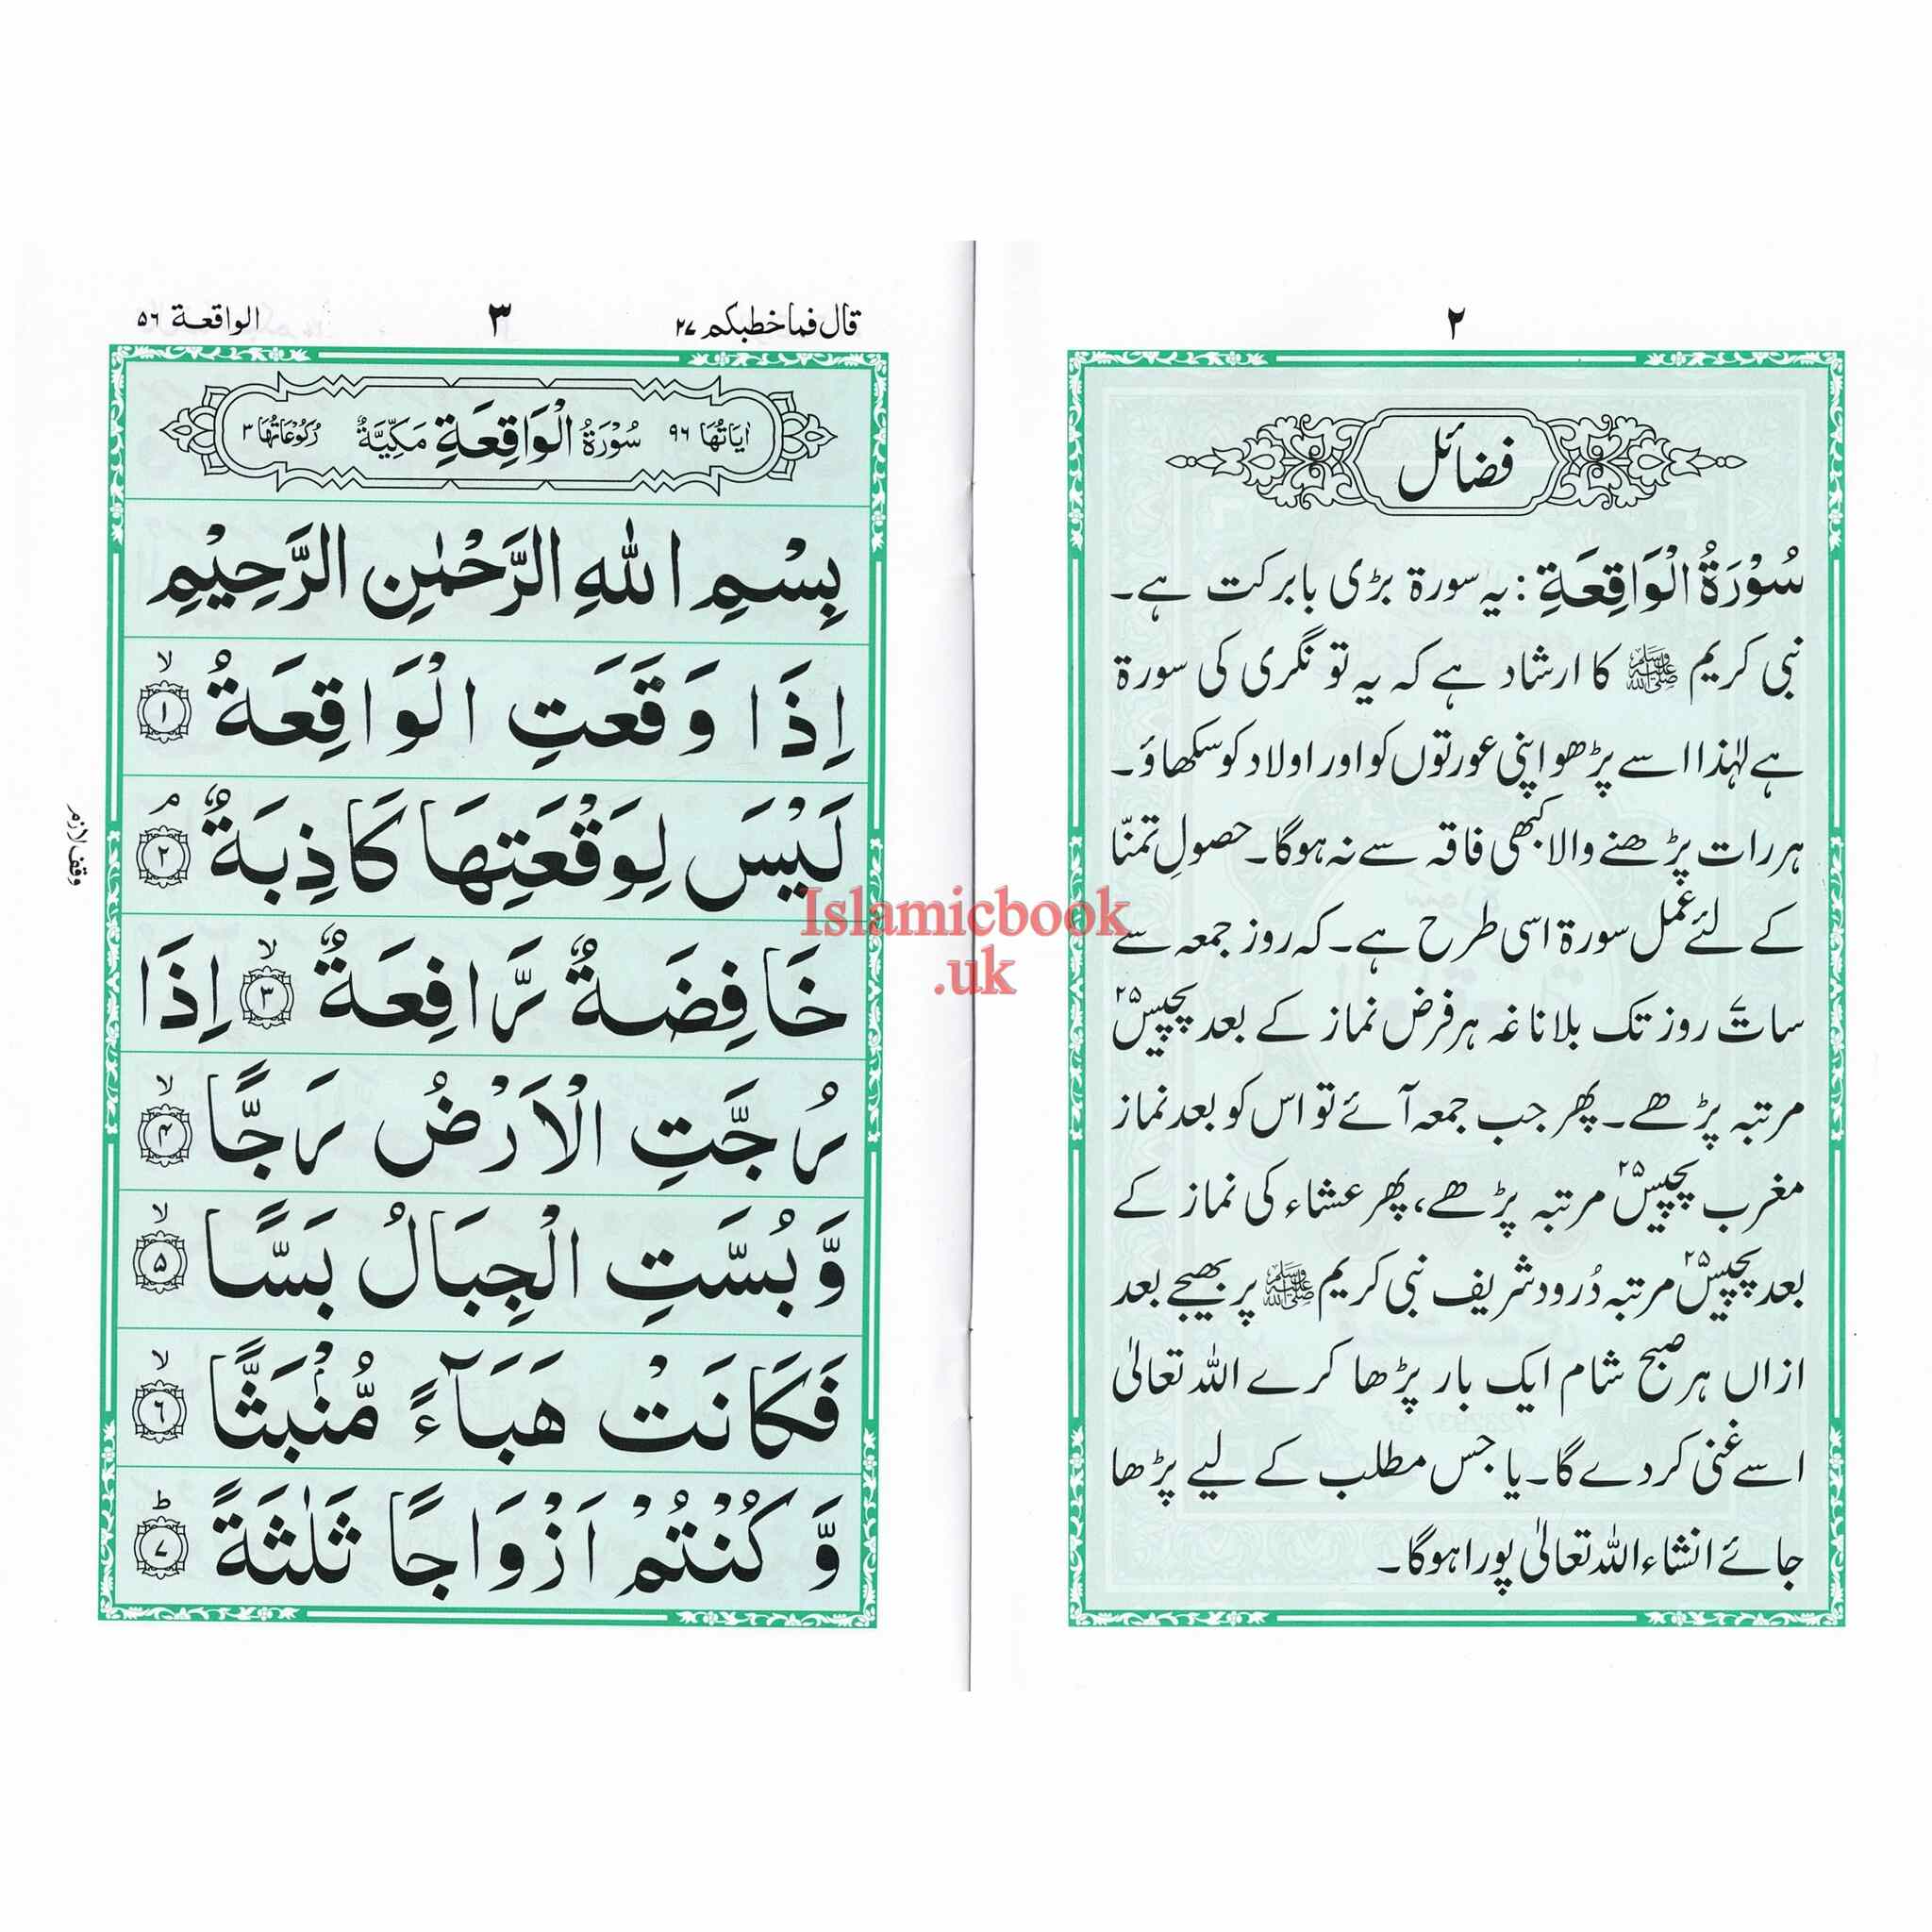 ۲
فضائل
سُوْرَةُ الْوَاقِعَةِ : یہ سورۃ بڑی بابرکت ہے۔
نبی کریم ﷺ کا ارشاد ہے کہ یہ تونگری کی سورۃ
ہے لہٰذا اسے پڑھو اپنی عورتوں کو اور اولاد کو سکھاؤ۔
ہر رات پڑھنے والا کبھی فاقہ سے نہ ہوگا۔ حصولِ تمنّا
کے لئے عمل سورۃ اسی طرح ہے۔ کہ روز جمعہ سے
سات۷ روز تک بلاناغہ ہر فرض نماز کے بعد پچیس۲۵
مرتبہ پڑھے۔ پھر جب جمعہ آئے تو اس کو بعد نماز
مغرب پچیس۲۵ مرتبہ پڑھے، پھر عشاء کی نماز کے
بعد پچیس۲۵ مرتبہ دُرود شریف نبی کریم ﷺ پر بھیجے بعد
ازاں ہر صبح شام ایک بار پڑھا کرے اللہ تعالیٰ
اسے غنی کر دے گا۔ یا جس مطلب کے لیے پڑھا
جائے انشاء اللہ تعالیٰ پورا ہوگا۔
قال فما خطبکم ۲۷ ۳ الواقعة ۵۶
اٰيَاتُهَا ۹۶ سُوْرَةُ الْوَاقِعَةِ مَكِّيَّةٌ رُكُوْعَاتُهَا ۳
بِسْمِ اللّٰهِ الرَّحْمٰنِ الرَّحِيْمِ
اِذَا وَقَعَتِ الْوَاقِعَةُ ۙ۱
لَيْسَ لِوَقْعَتِهَا كَاذِبَةٌ ۘ۲
وقف لازم
خَافِضَةٌ رَّافِعَةٌ ۙ۳ اِذَا
رُجَّتِ الْاَرْضُ رَجًّا ۙ۴
وَّبُسَّتِ الْجِبَالُ بَسًّا ۙ۵
فَكَانَتْ هَبَآءً مُّنْۢبَثًّا ۙ۶
وَّكُنْتُمْ اَزْوَاجًا ثَلٰثَةً ؕ۷
Islamicbook
.uk